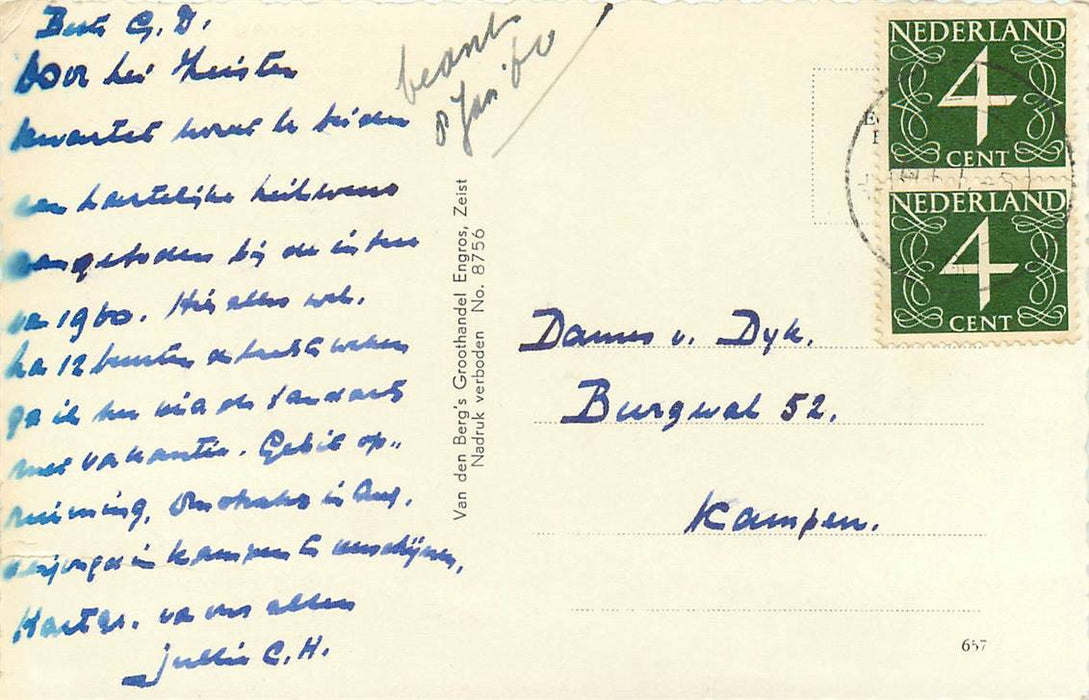 Beste G. D.
Door het Zeister
kwartet wordt U beiden
een hartelijke heilwens
aangeboden bij de intree
van 1960. Hier alles wel.
Na 12 beurten
ga ik
met vakantie. Gebit op-
ruiming, in Aug.
in Kampen te verschijnen,
Hart gr. van ons allen
jullie C. H.
beant
8 Jan '60
Van den Berg's Groothandel Engros, Zeist
Nadruk verboden No. 8756
NEDERLAND
4
CENT
NEDERLAND
4
CENT
Dames v. Dyk.
Burgwal 52.
Kampen.
657